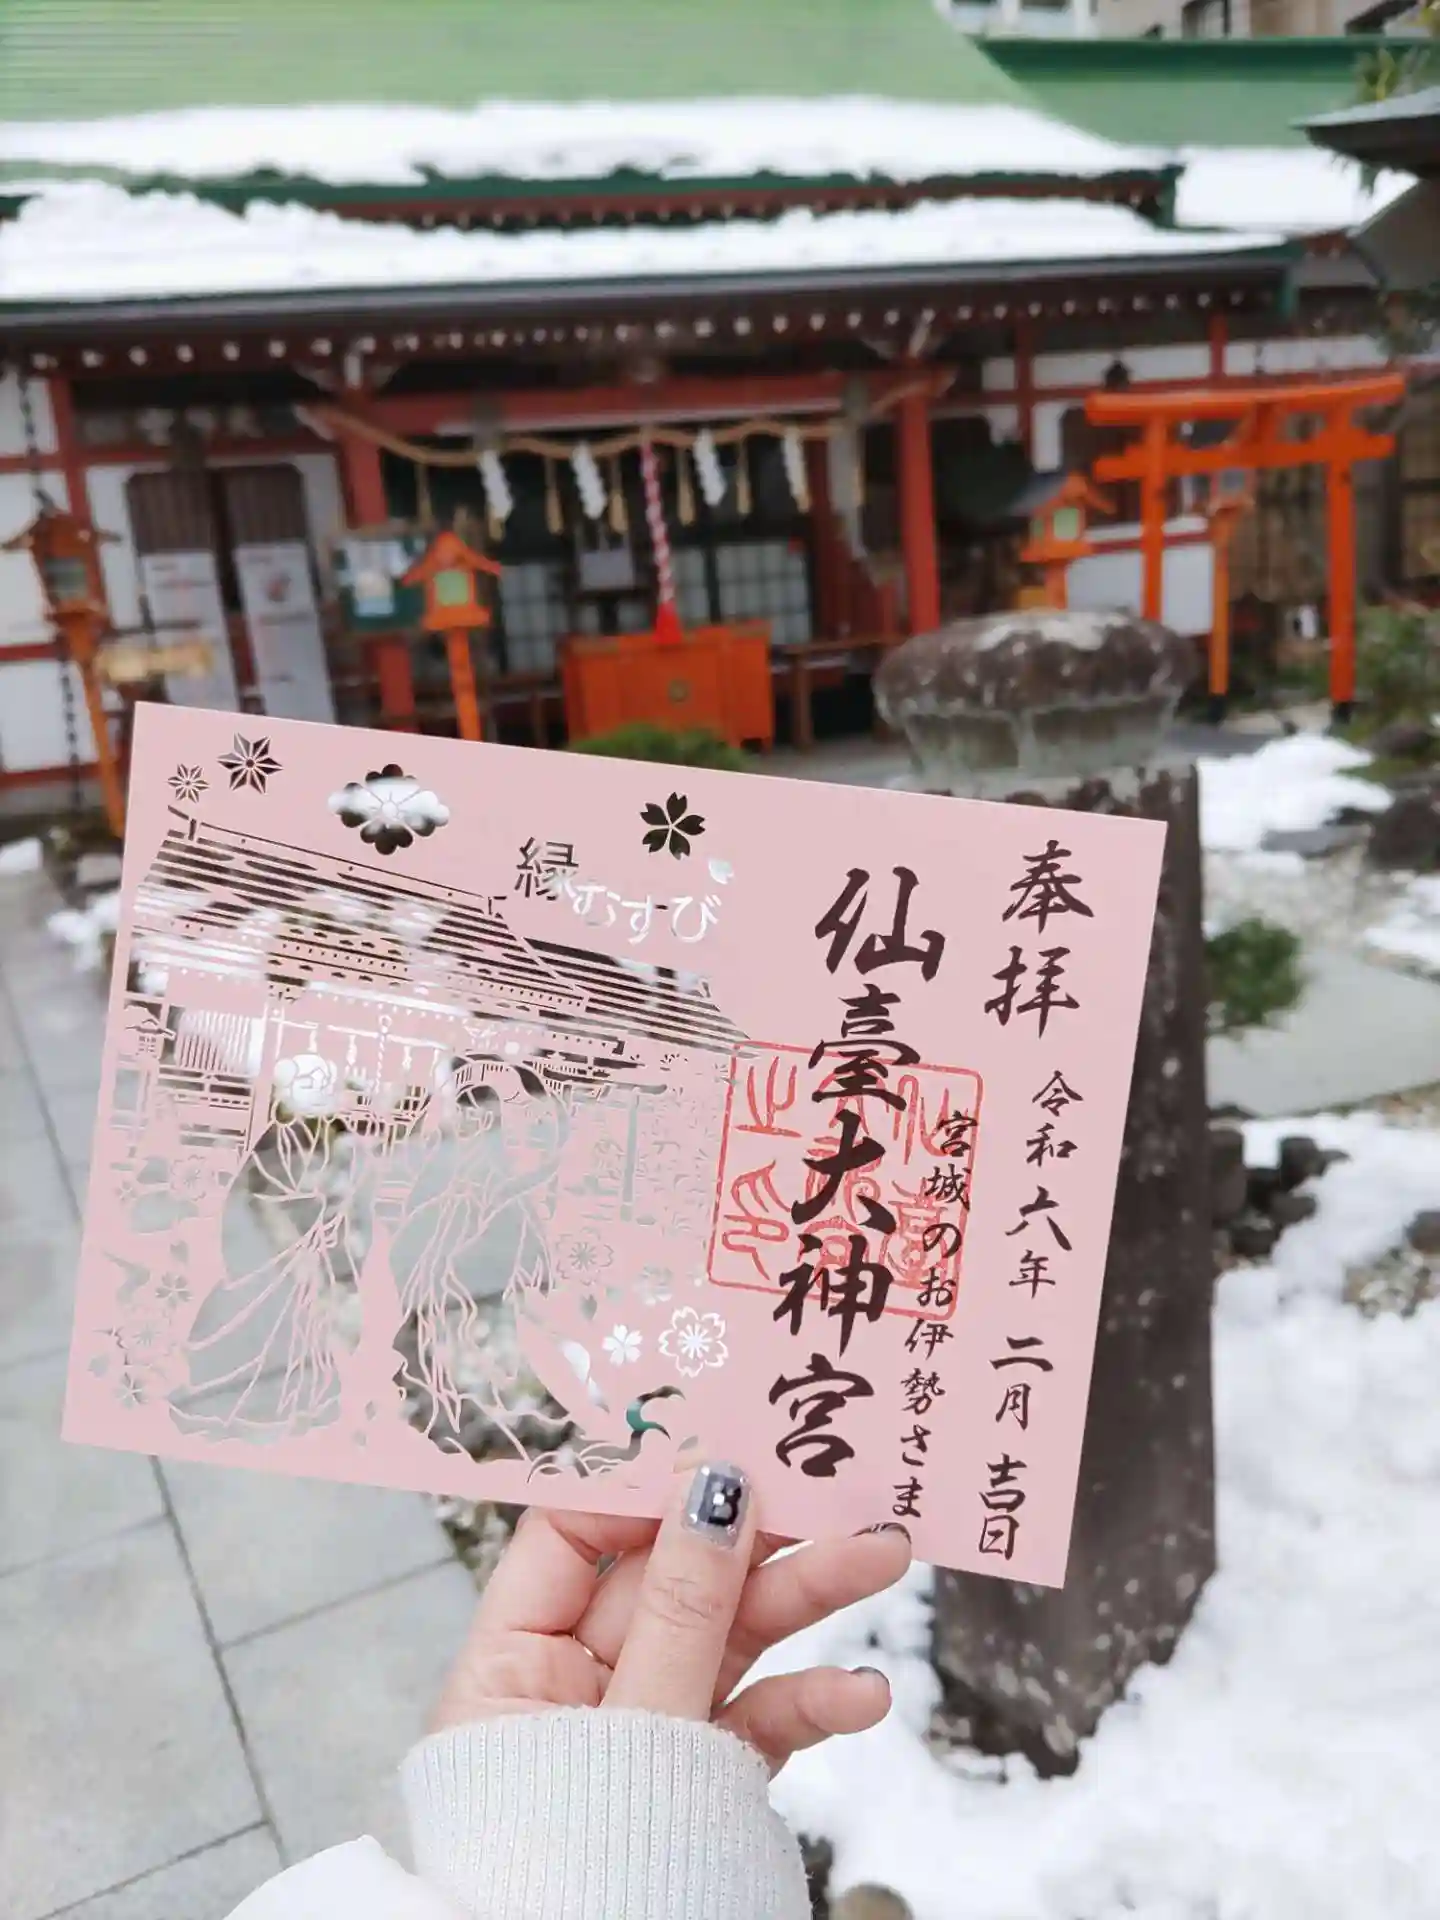 奉拝
令和六年 二月 吉日
宮城のお伊勢さま
仙臺大神宮
縁むすび